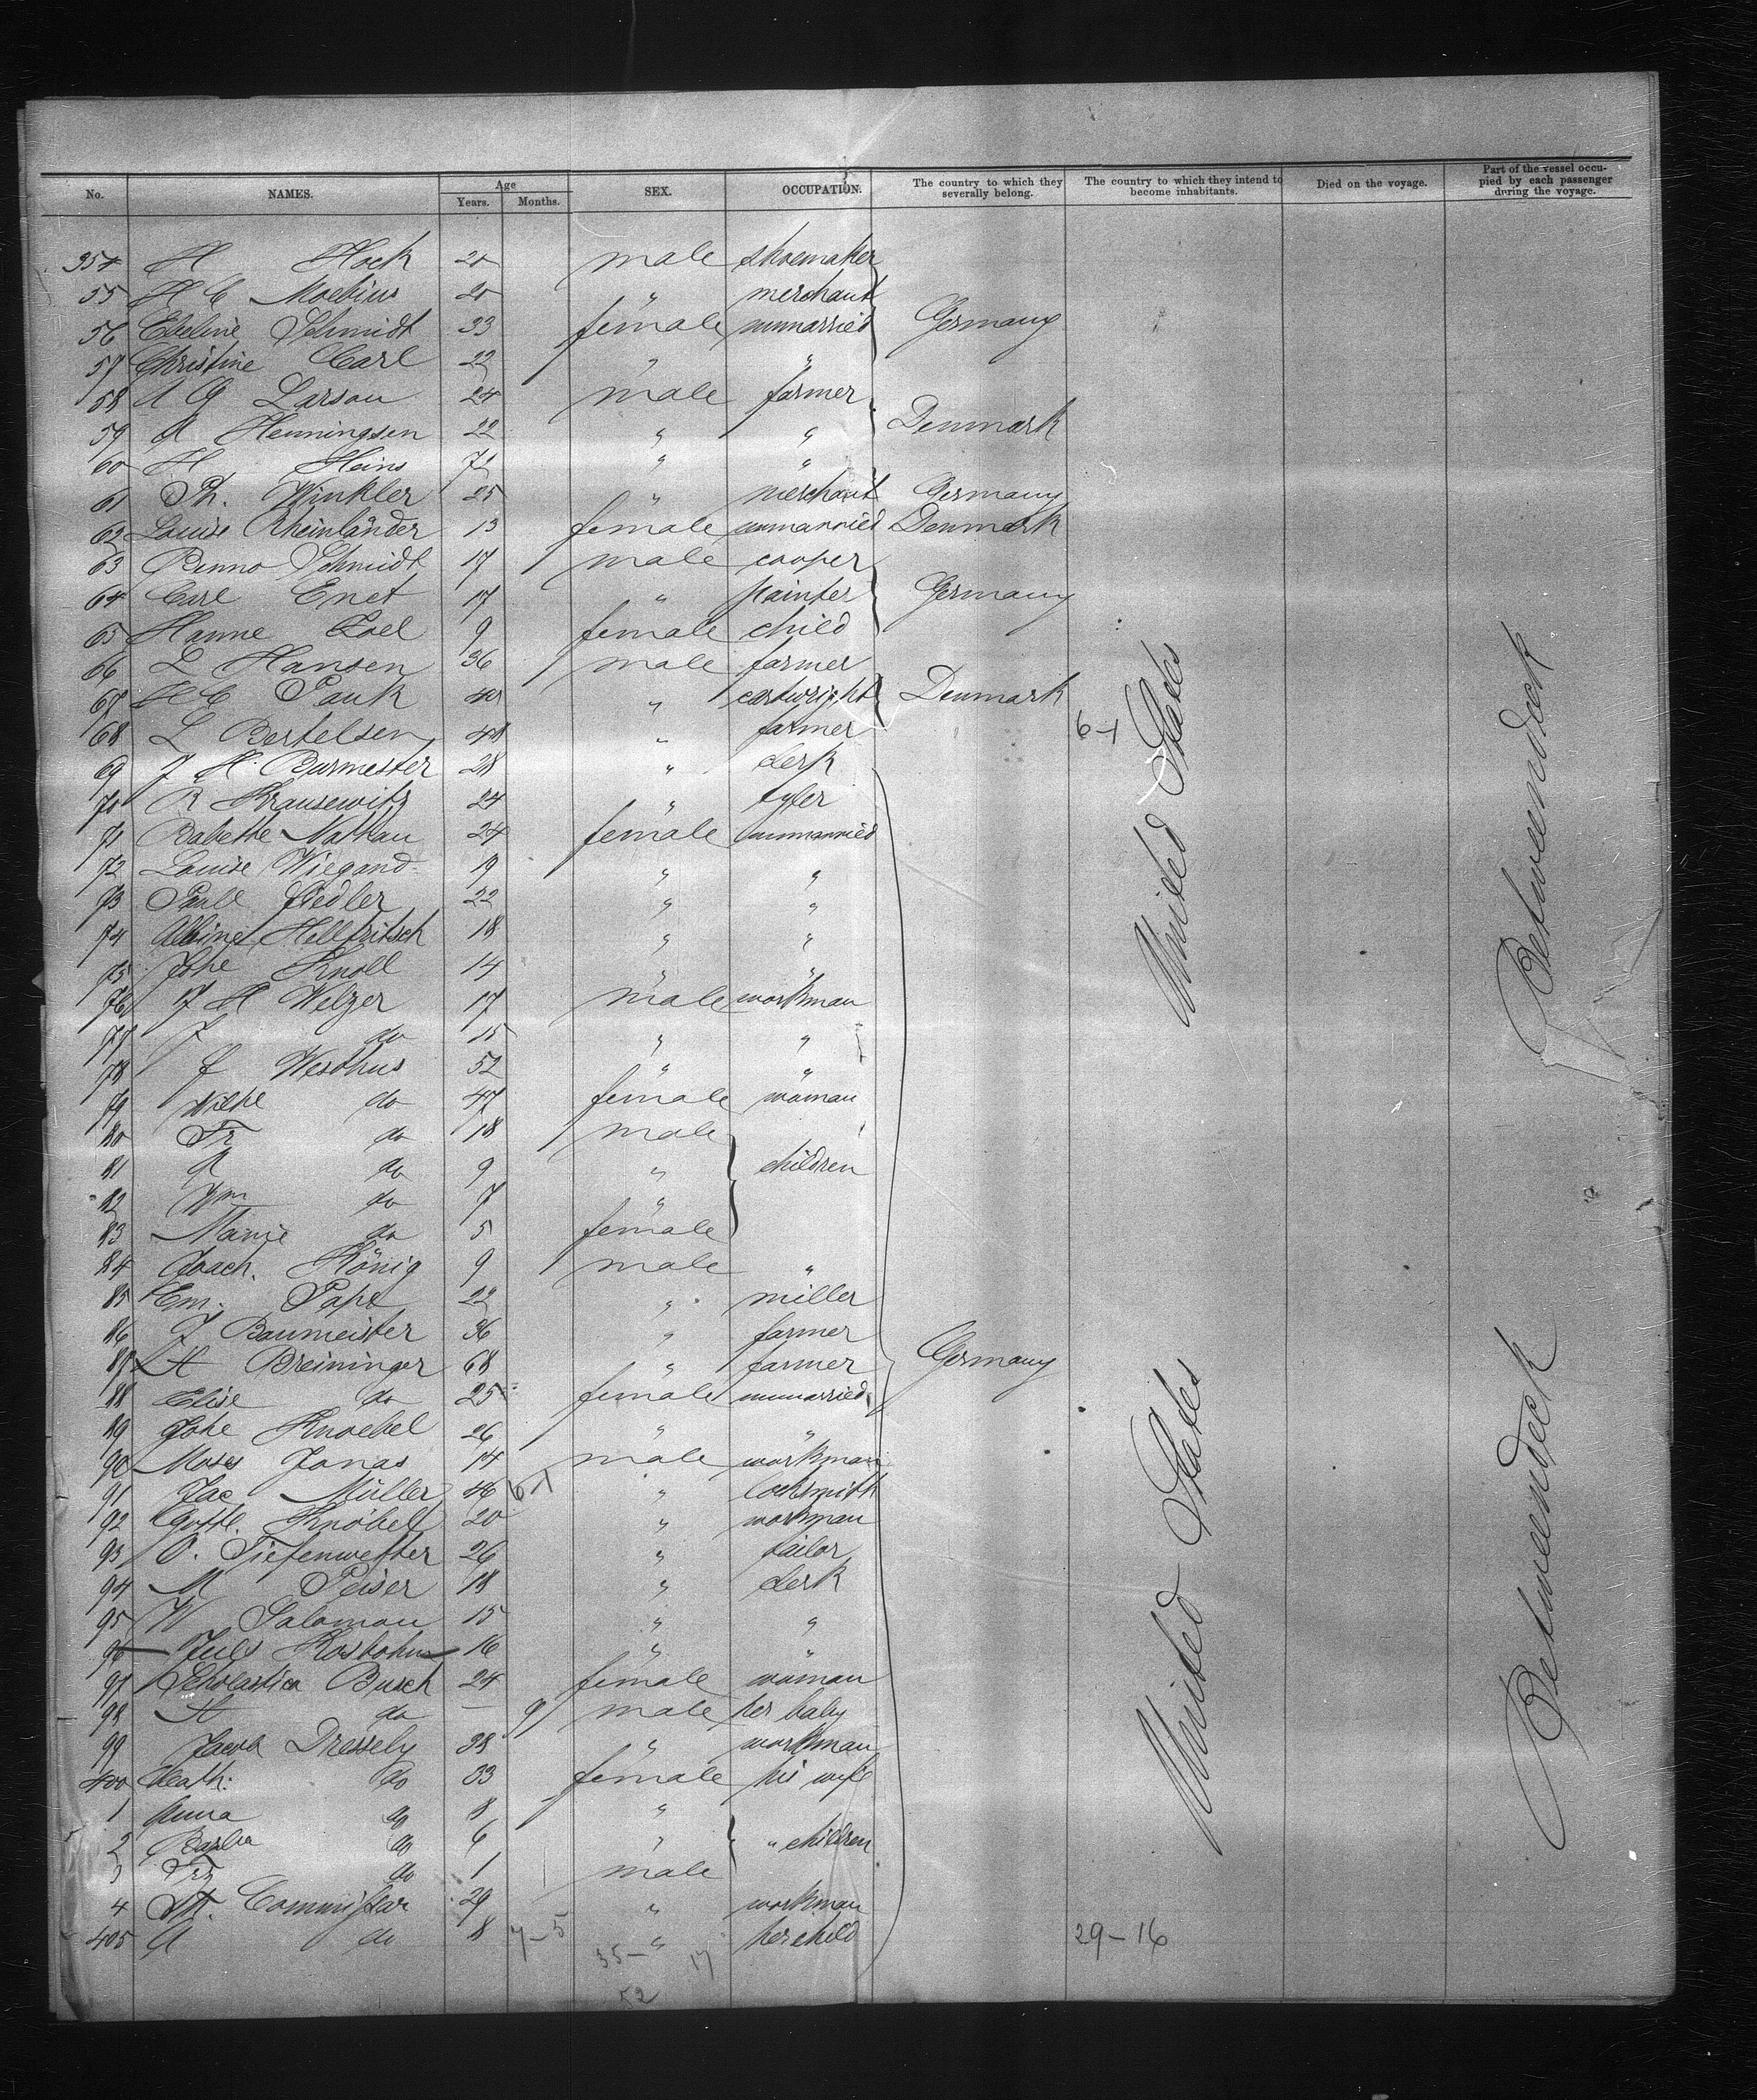 No. NAMES. Age Years. Months. SEX. OCCUPATION. The country to which they severally belong. The country to which they intend to become inhabitants. Died on the voyage. Part of the vessel occupied by each passenger during the voyage.
354 H Hock 20 male shoemaker
55 H C Moebius 20 " merchant
56 Eveline Schmidt 33 female unmarried Germany
57 Christine Carl 22 " "
58 A G Larson 24 male farmer
59 A Henningsen 22 " " Denmark
60 H Heins 71 " "
61 Ph. Winkler 25 " merchant Germany
62 Louise Rheinländer 13 female unmarried Denmark
63 Benno Schmidt 17 male cooper
64 Carl Enet 17 " painter Germany
65 Hanne Zoel 9 female child
66 L Hansen 36 male farmer
67 H C Pauk 40 " cartwright Denmark
68 L Bertelsen 48 " farmer 6-1
69 J H Burmester 28 " clerk
70 R Krausewitz 24 " tyler
71 Babette Nathan 24 female unmarried
72 Louise Wiegand 19 " "
73 Paul Fiedler 22 " "
74 Albine Hellfritsch 18 " "
75 Johe Knoll 14 " "
76 J H Welzer 17 male workman
77 J do 15 " "
78 J Westhus 52 " "
79 Wilhe do 47 female woman
80 Fr do 18 male
81 A do 9 " children
82 Wm do 7 "
83 Marie do 5 female
84 Joach. König 9 male "
85 Em. Pape 22 " miller
86 J Baumeister 36 " farmer
87 H Breininger 68 " farmer Germany
88 Elise do 25 female unmarried
89 Johe Knoebel 26 " "
90 Moses Jonas 14 male workman
91 Jac Müller 46 6-1 " locksmith
92 Gottl. Knöbel 20 " workman
93 O. Tiefenwetter 26 " tailor
94 M Peiser 18 " clerk
95 W Salomon 15 " "
96 Juls Rosbohm 16 " "
97 Scholastica Busch 24 female woman
98 H do — 9 male her baby
99 Jacob Dressely 38 " workman
400 Cath: do 33 female his wife
1 Anna do 8 "
2 Barba do 6 " " children
3 Frz do 1 male
4 St. Commissar 29 " workman
405 A do 8 7-5 " her child 29-16
35- 17
52
United States
Betweendeck
United States
Betweendeck